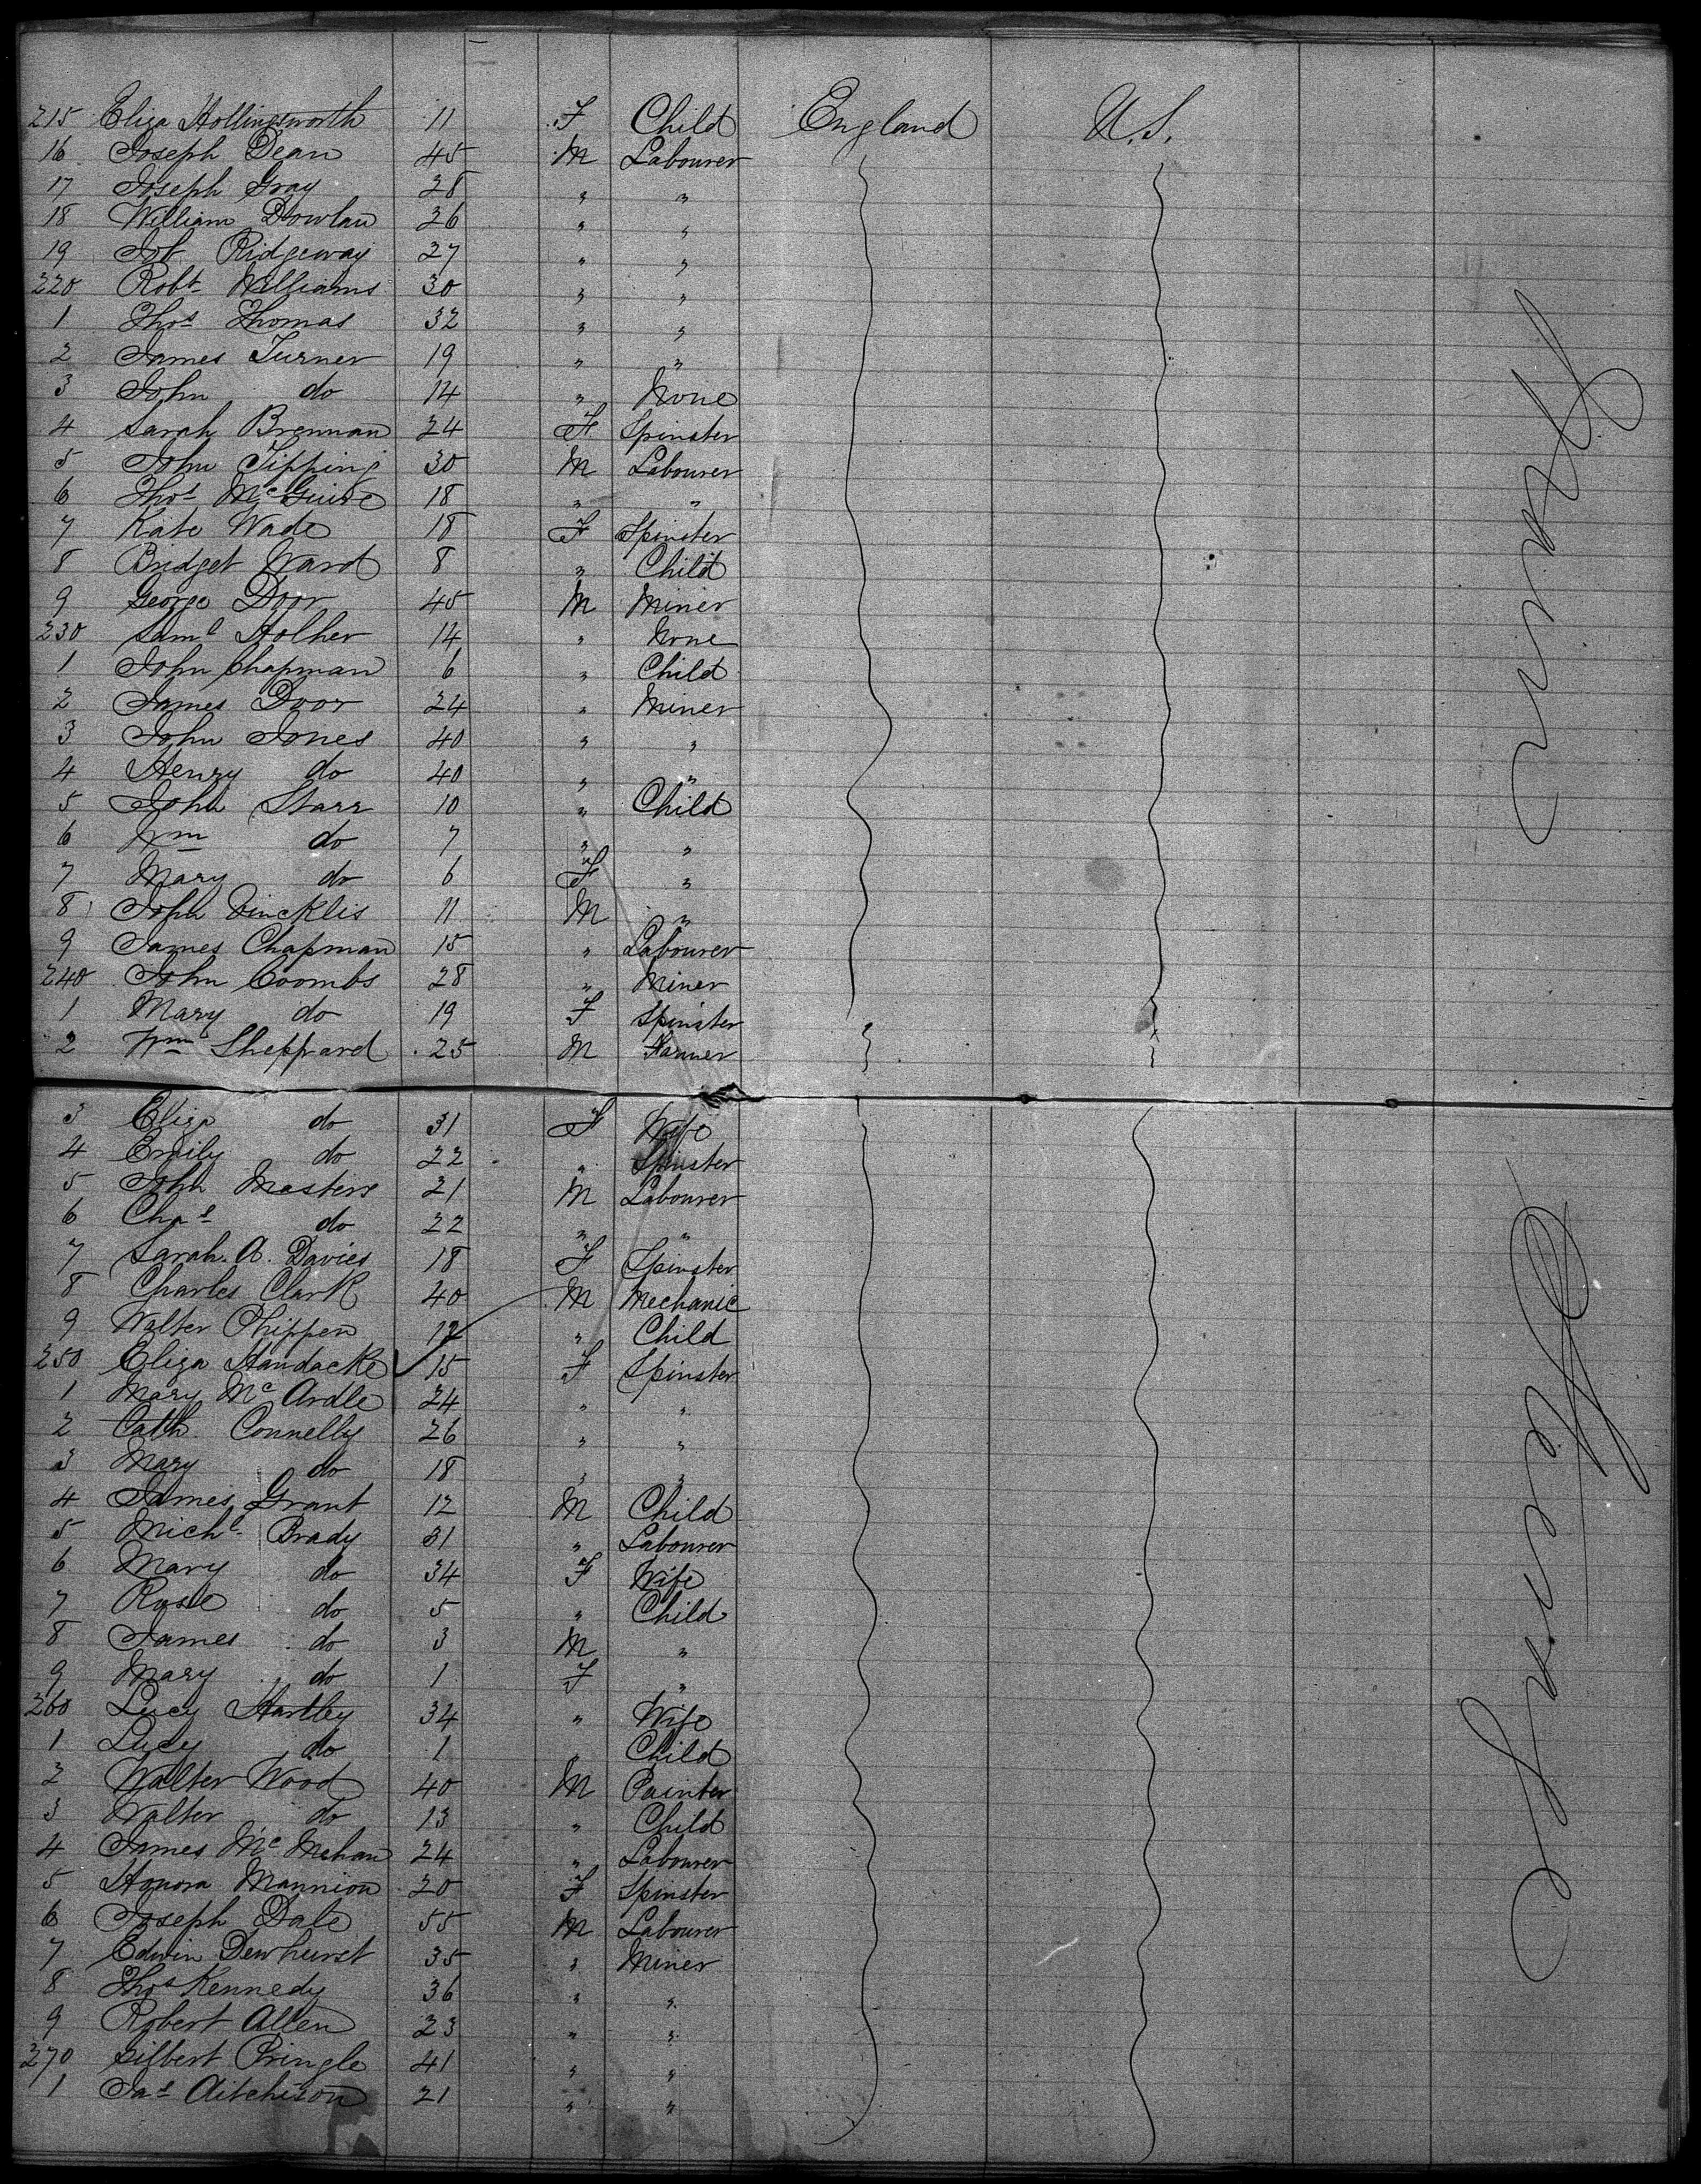 215 Eliza Hollingsworth 11 F Child England U.S.
16 Joseph Dean 45 M Labourer
17 Joseph Gray 28 " "
18 William Dowlan 26 " "
19 Job Ridgeway 27 " "
220 Robt Williams 30 " "
1 Thos Thomas 32 " "
2 James Turner 19 " "
3 John do 14 " None
4 Sarah Brennan 24 F Spinster
5 John Tipping 30 M Labourer
6 Thos McGuire 18 " "
7 Kate Wade 18 F Spinster
8 Bridget Ward 8 " Child
9 George Door 45 M Miner
230 Saml Holher 14 " None
1 John Chapman 6 " Child
2 James Door 24 " Miner
3 John Jones 40 " "
4 Henry do 40 " "
5 John Starr 10 " Child
6 Wm do 7 " "
7 Mary do 6 F "
8 John 11 M "
9 James Chapman 15 " Labourer
240 John Coombs 28 " Miner
1 Mary do 19 F Spinster
2 Wm Sheppard 25 M Farmer
3 Eliza do 31 F Wife
4 Emily do 22 " Spinster
5 John Masters 21 M Labourer
6 Chas do 22 " "
7 Sarah A. Davies 18 F Spinster
8 Charles Clark 40 M Mechanic
9 Walter Phippen 12 " Child
250 Eliza 15 F Spinster
1 Mary McArdle 24 " "
2 Cath Connelly 26 " "
3 Mary do 18 " "
4 James Grant 12 M Child
5 Michl Brady 31 " Labourer
6 Mary do 34 F Wife
7 Rose do 5 " Child
8 James do 3 M "
9 Mary do 1 F "
260 Lucy Hartley 34 " Wife
1 Lucy do 1 " Child
2 Walter Wood 40 M Painter
3 Walter do 13 " Child
4 James McMehan 24 " Labourer
5 Honora Mannion 20 F Spinster
6 Joseph Dale 55 M Labourer
7 Edwin Dewhurst 35 " Miner
8 Thos Kennedy 36 " "
9 Robert Allen 23 " "
270 Gilbert Pringle 41 " "
1 Jas Aitchison 21 " "